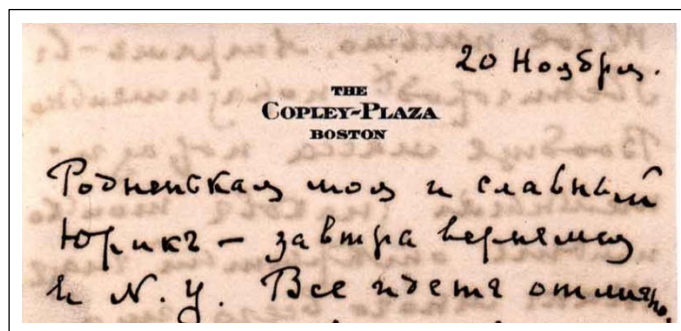 20 Ноября.
THE
COPLEY-PLAZA
BOSTON
Родненская моя и славный
Юрикъ – завтра вернемся
въ N.Y. Все идетъ отлично,